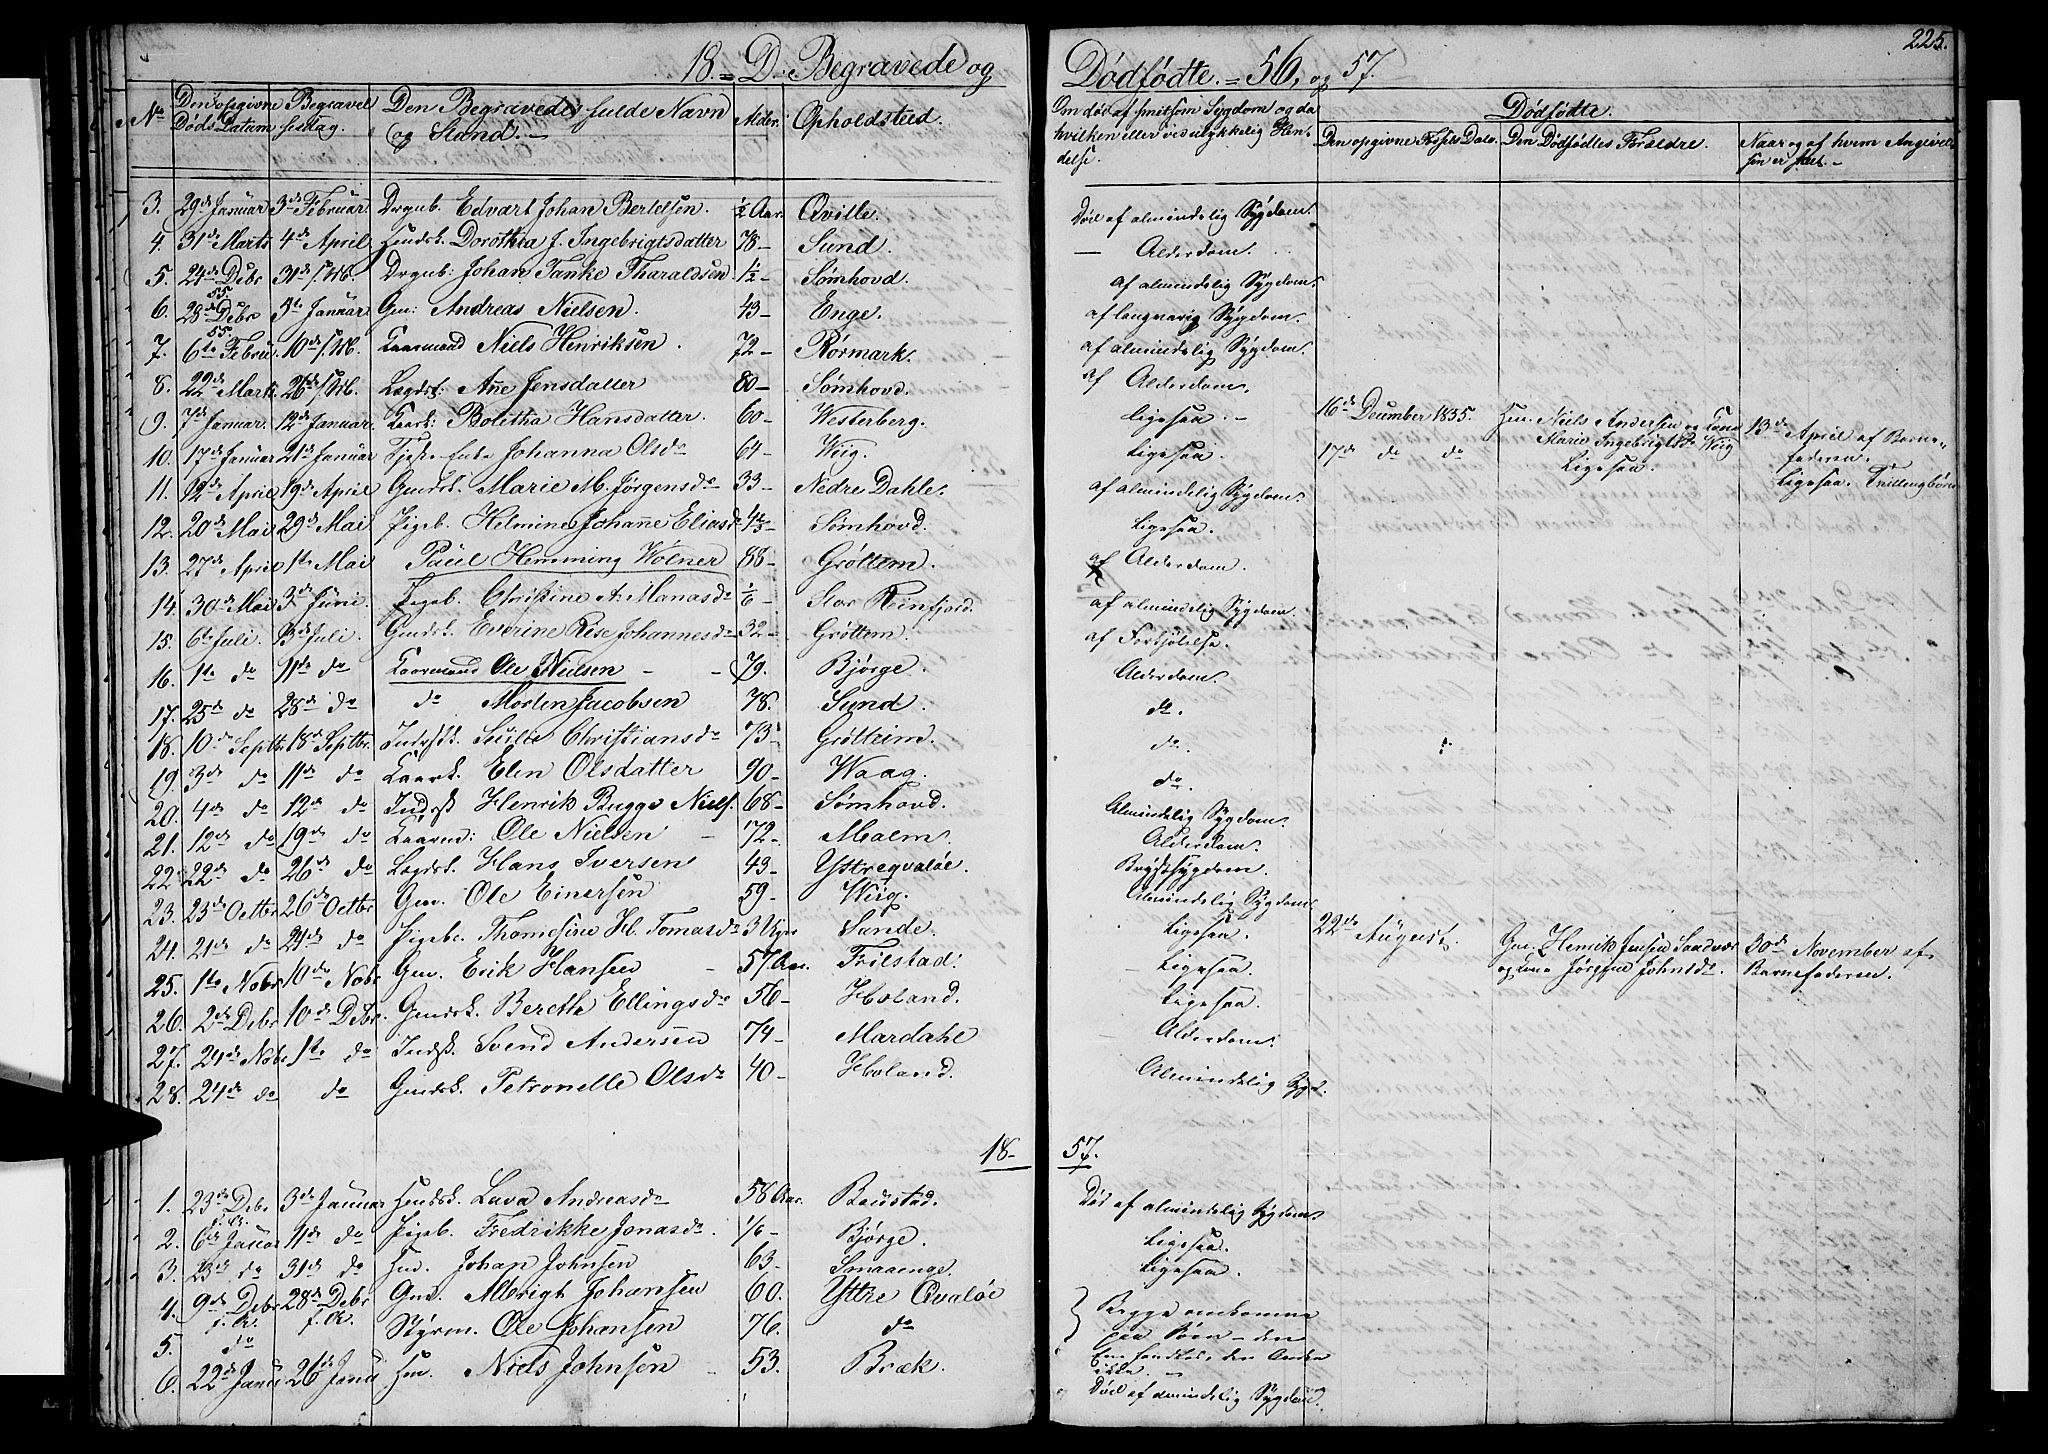 225.
18. D. Begravede og Dødfødte. 56, og 57.
No Den opgivne Døds Datum Begravel sesdag. Den Begravedes fulde Navn og Stand. Alder. Opholdsted. Om død af smitsom Sygdom og da hvilken eller ved ulykkelig Hændelse. Dødfødte.
Den opgivne Fødsels Dato. Den Dødfødtes Forældre. Naar og af hvem Angivelsen er skeet.
3. 29de Januar 3de Februar. Drgnb. Edvart Johan Bertelsen. ½ Aar. Qville. Død af almindelig Sygdom.
4. 31de Marts 4de April Dorothea J. Ingebrigtsdatter 78 Sund Alderdom.
5. 24de Debr 55. 31de Drgnb: Johan Tanke Tharaldsen 1½ Sømhovd. af almindelig Sygdom.
6. 28de Debr 55. Januar Gm: Andreas Nielsen. 43 Enge. af langvarig Sygdom.
7. 6te Febru 10de Kaarmand Niels Henriksen. 72 Rørmark. af almindelig Sygdom.
8. 22de Marts 26de Lægdsl: Ane Jensdatter 80 Sømhovd. af Alderdom.
9. 7de Januar. 12de Januar. Kaark: Bolitha Hansdatter. 60 Westerberg. Ligesaa. 16de December 1855. Niels Andersen og Kone Marie Ingebrigtsd. Wiig 13de April af Barnefaderen.
10. 17de Januar 21de Januar Enke Johanna Olsd 64 Wiig. Ligesaa. 17de do do Ligesaa. Ligesaa. Tvillingbørn
11. 12de April 19de April Gmdsk. Marie M. Jørgensd 33 Nedre Dahle. af almindelig Sygdom.
12. 20de Mai 29de Mai Pigeb. Helmine Johanne Eliasd Sømhovd. Ligesaa.
13. 27de April 1ste Mai Paul Hemming Wolner 88 Grøttem. af Alderdom.
14. 30de Mai 3de Juni. Pigeb. Christine A. Monasd 1/6 Stor Reinfjord. af almindelig Sygdom.
15. 6te Juli. Juli. Gmdsk. Everine Rise Johannesd 32 Grøttem. af Forkjølelse.
16. 1ste do 11de do Kaarmand Ole Nielsen 79. Bjørge. Alderdom.
17. 25de do 28de do do Morten Jacobsen 78. Sund. do.
18. 10de Septbr 18de Septbr. Indrstk. Christiansd 73 Grøtteim. do.
19. 3de do 11de do Kaark. Elen Olsdatter 90 Waag. do.
20. 4de do 12de do Indrst Henrik Bugge Niels. 68 Sømhovd. Almindelig Sygdom.
21. 12de do 19de do Kaarm: Ole Nielsen 72 Malm. Alderdom.
22. 22de do 26de do Lægdsl. Hans Iversen 49 Yttreqvaløe. Brystsygdom.
23. 23de Octbr 26de Octbr Gm. Ole Einersen 59 Wiig. Almindelig Sygdom.
24. 21de do 24de do Pigeb. Thomesine H. Tomasd 3 Uger Sunde. Ligesaa. 22de August. Gm. Henrik Jensen og Kone Johnsd. 30de November af Barnefaderen.
25. 1ste Nobr 10de Nobr Gm. Erik Hansen 57 Aar. Frilstad. Ligesaa.
26. 2de Debr 10de Debr. Gmdsk. Beretha Ellingsd 56 Holand. Ligesaa.
27. 24de Nobr 1ste do Indst. Svend Andersen 74 Mardahl Alderdom.
28. 24de do do Gmdsk. Petronelle Olsd 40 Holand. Almindelig Sygd.
18 57.
1. 23de Debr 3de Januar Lava Andreasd 58 Aar. Baustad. Død af almindelig Sygdom.
2. 6te Januar 11de do Pigeb. Fredrikke Jonasd. 1/6 Bjørge. Ligesaa.
3. 23de do 31de do Johan Johnsen 63 Smaaenge. Ligesaa.
4. 9de Debr 28de Debr Gm. Albrigt Johansen 60. Yttre Qvaløe Begge omkomne paa Søen den Ene fundet, den Anden ikke.
5. do Styrm. Ole Johansen 76. do
6. 22de Janua 26de Janua Niels Johnsen 53. Bræk. Død af almindelig Sygdom.